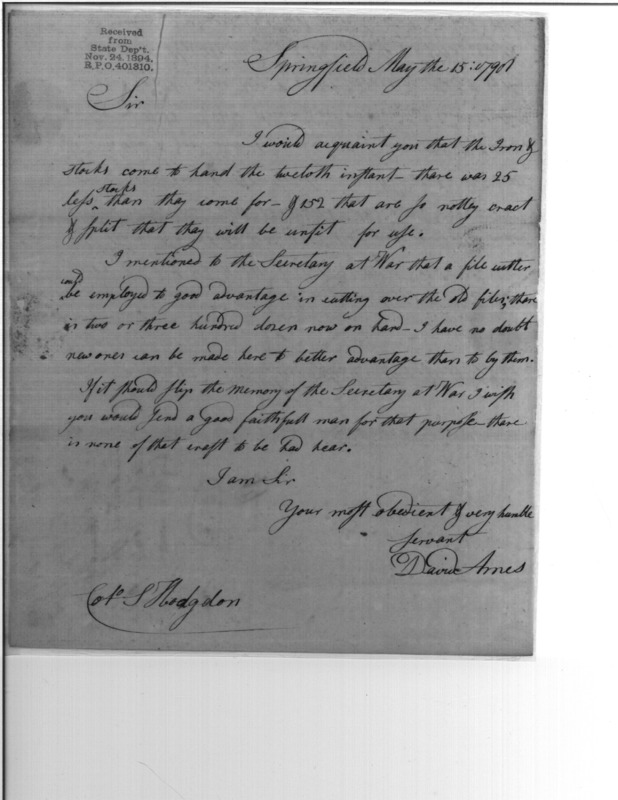 Received
from
State Dep't.
Nov. 24, 1894,
R.P.O. 401310.
Springfield May the 15: 1798
Sir
I would acquaint you that the Iron &
stocks come to hand the twelvth instant - there was 25
less stocks than thay come for - & 152 that are so notley cract
& split that thay will be unfit for use.
I mentioned to the Secretary at War that a file cutter
could be employed to good advantage in cutting over the old files; thare
is two or three hundred dozen now on hand - I have no doubt
new ones can be made here to better advantage than to by them.
If it should slip the memory of the Secretary at War I wish
you would send a good faithfull man for that purpose - thare
is none of that craft to be had hear.
I am Sir
Your most obedient & very humble
servant
David Ames
Colo. S Hodgdon